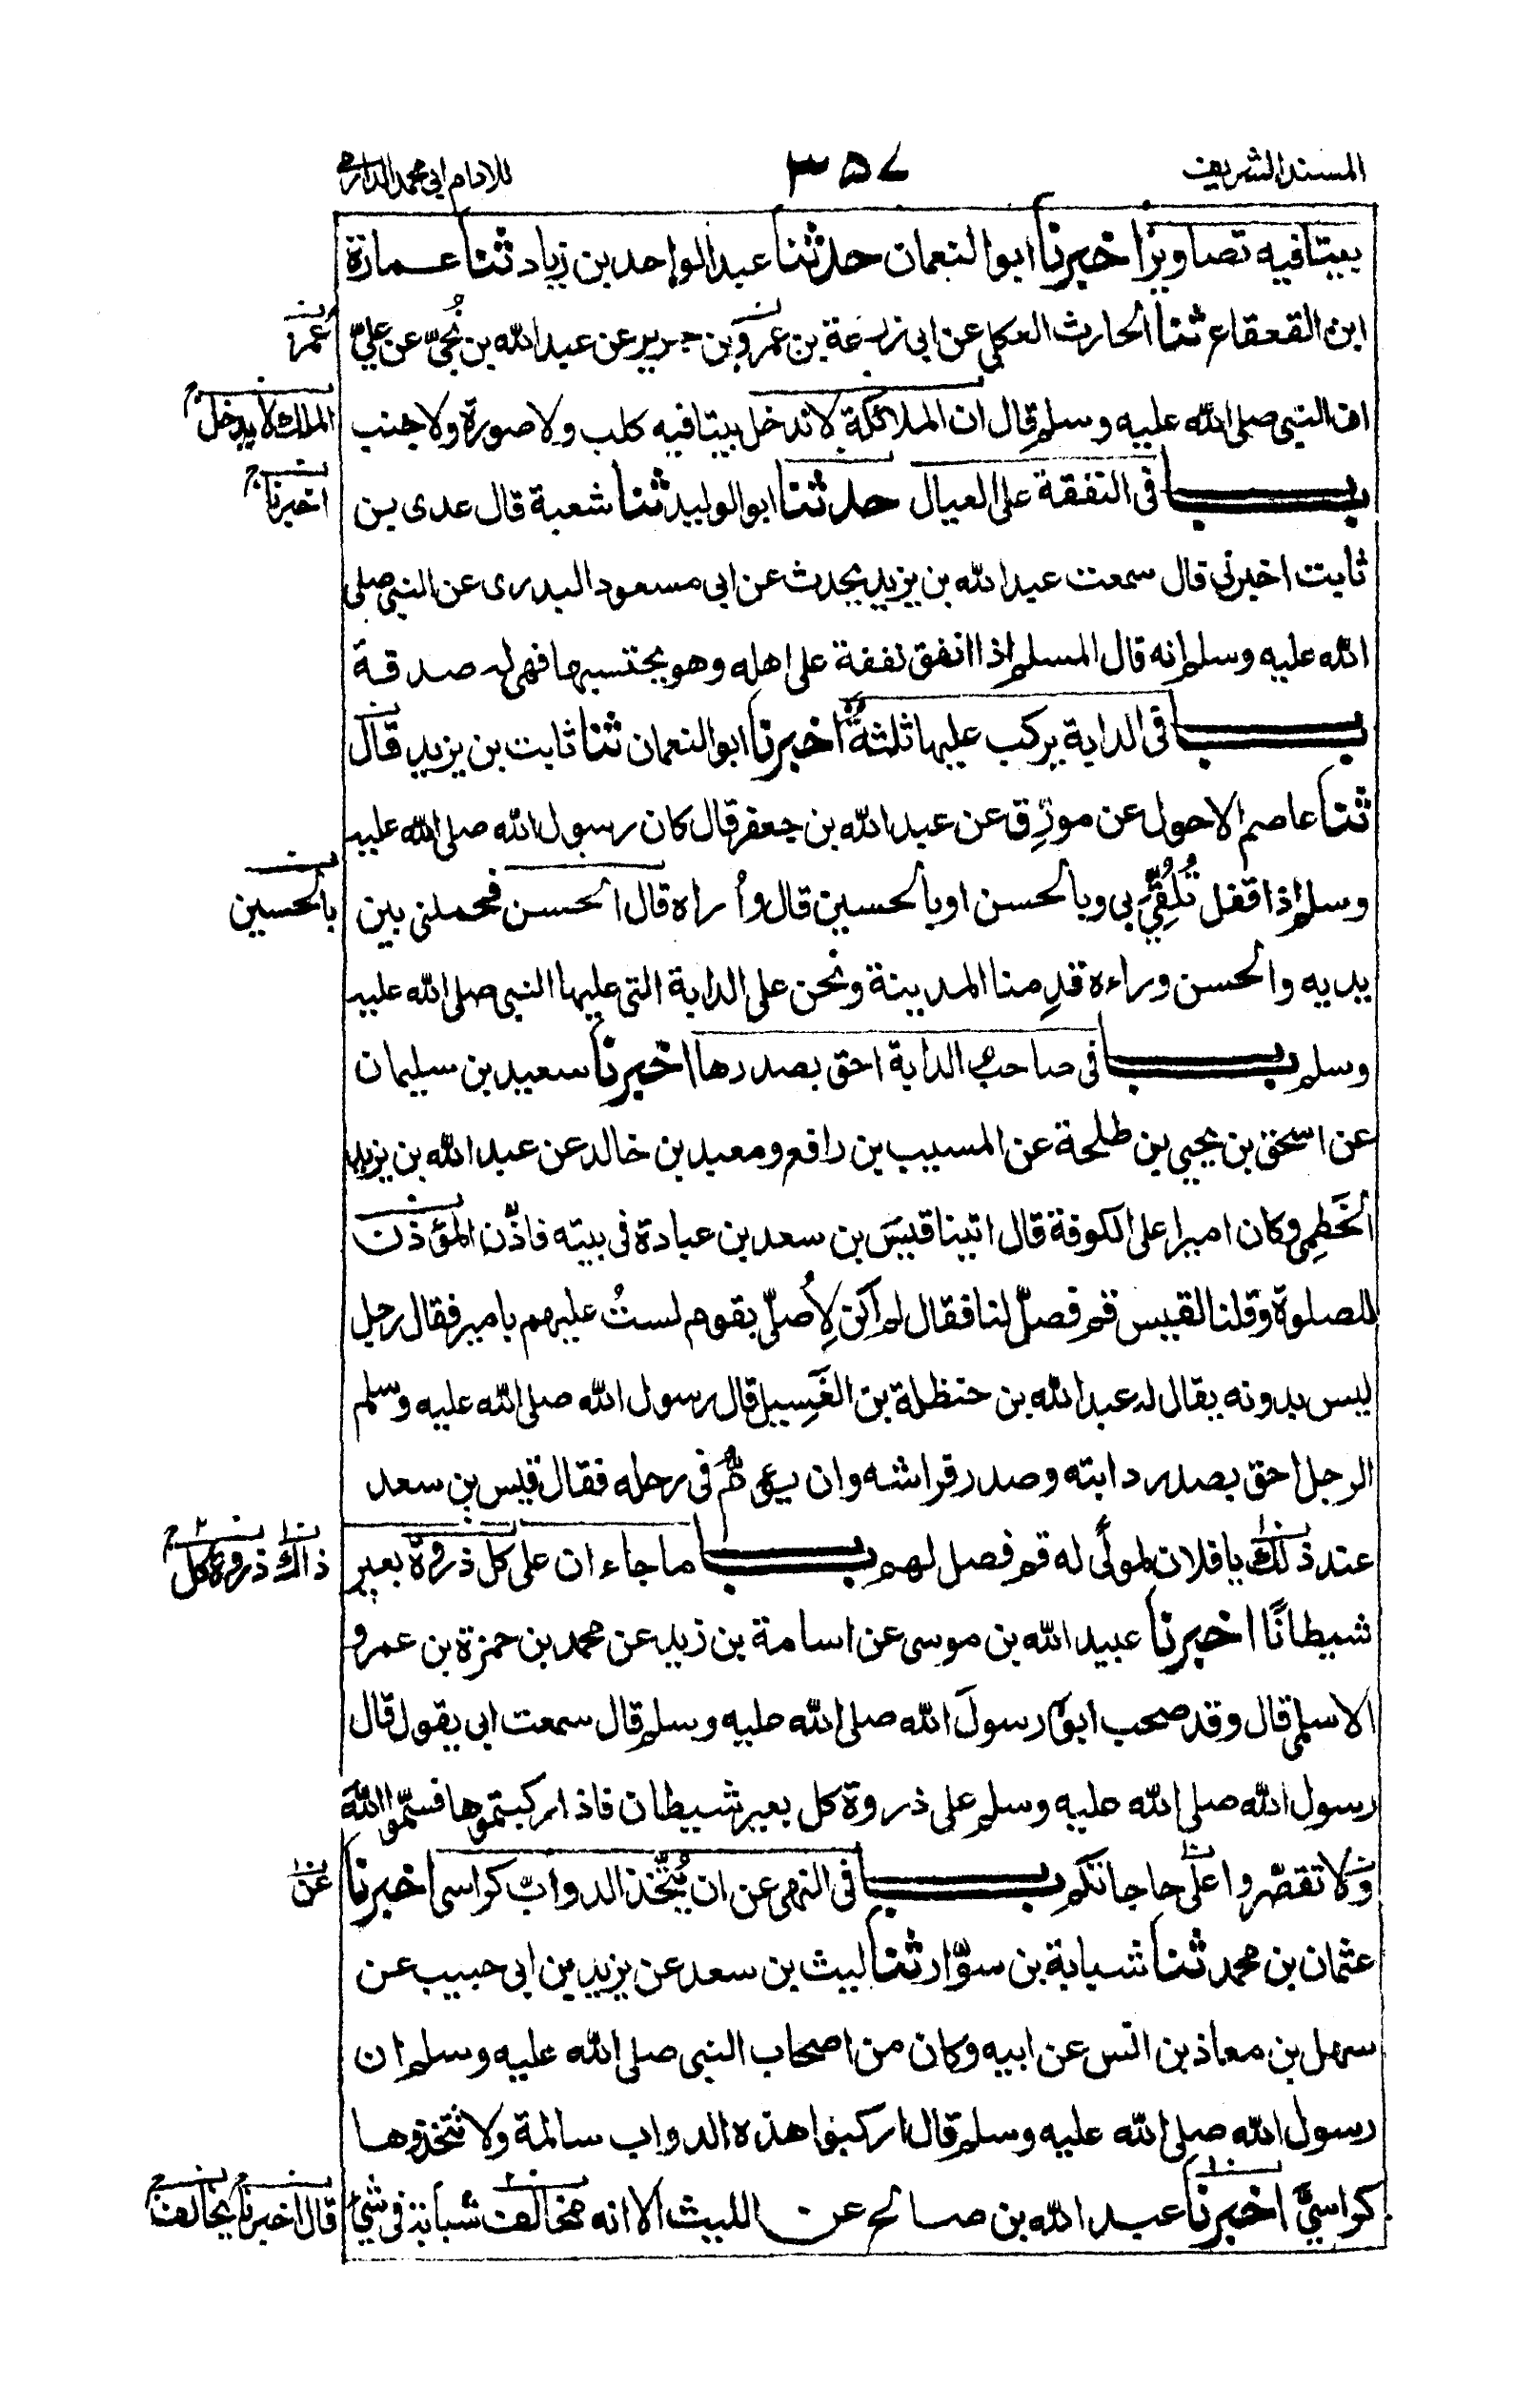 المسند الشريف ٣٥٧ للامام ابی محمد الدارمی
بیتا فیه تصاویر اخبرنا ابو النعمان حدثنا عبد الواحد بن زیاد ثنا عمارة
ابن القعقاع ثنا الحارث العکلی عن ابی زرعة بن عمرو بن جریر عن عبد الله بن نُجَیّ عن علیّ
عمر
ان النبی صلی الله علیه وسلم قال ان الملائکة لا تدخل بیتا فیه کلب ولا صورة ولا جنب
الملك لا یدخل
باب فی النفقة علی العیال حدثنا ابو الولید ثنا شعبة قال عدی بن
اخبرنا
ثابت اخبرنی قال سمعت عبد الله بن یزید یحدث عن ابی مسعود البدری عن النبی صلی
الله علیه وسلم انه قال المسلم اذا انفق نفقة علی اهله وهو یحتسبها فهی له صدقة
باب فی الدابة یرکب علیها ثلثةٌ اخبرنا ابو النعمان ثنا ثابت بن یزید قال
ثنا عاصم الاحول عن مورّق عن عبد الله بن جعفر قال کان رسول الله صلی الله علیه
وسلم اذا قفل تُلُقِّیَ بی وبالحسن او بالحسین قال وأراه قال الحسن فحملنی بین
بالحسین
یدیه والحسن وراءه قدِمنا المدینة ونحن علی الدابة التی علیها النبی صلی الله علیه
وسلم باب فی صاحب الدابة احق بصدرها اخبرنا سعید بن سلیمان
عن اسحٰق بن یحیی بن طلحة عن المسیب بن رافع ومعبد بن خالد عن عبد الله بن یزید
الخَطِمی وکان امیرا علی الکوفة قال اتینا قیسَ بن سعد بن عبادة فی بیته فاذّن المؤذن
للصلوة وقلنا لقیس قم فصلّ لنا فقال لم اکن لِأُصلّی بقوم لستُ علیهم بامیر فقال رجل
لیس بدونه یقال له عبد الله بن حنظلة بن الغَسِیل قال رسول الله صلی الله علیه وسلم
الرجل احق بصدر دابته وصدر فراشه وان یؤم فی رحله فقال قیس بن سعد
عند ذلك یا فلان لمولًی له قم فصل لهم باب ما جاء ان علی کل ذروة بعیر
ذاك ذروة کل
شیطانًا اخبرنا عبید الله بن موسی عن اسامة بن زید عن محمد بن حمزة بن عمرو
الاسلمی قال وقد صحب ابوه رسولَ الله صلی الله علیه وسلم قال سمعت ابی یقول قال
رسول الله صلی الله علیه وسلم علی ذروة کل بعیر شیطان فاذا رکبتموها فسمّوا اللهَ
ولا تقصّروا علی حاجاتکم باب فی النهی عن ان یُتّخذ الدوابّ کراسی اخبرنا
عن
عثمان بن محمد ثنا شبابة بن سوّار ثنا لیث بن سعد عن یزید بن ابی حبیب عن
سهل بن معاذ بن انس عن ابیه وکان من اصحاب النبی صلی الله علیه وسلم ان
رسول الله صلی الله علیه وسلم قال ارکبوا هذه الدواب سالمة ولا تتخذوها
کراسیَّ اخبرنا عبد الله بن صالح عن اللیث الا انه مخالف شبابة فی شئ
قال اخبرنا یخالف